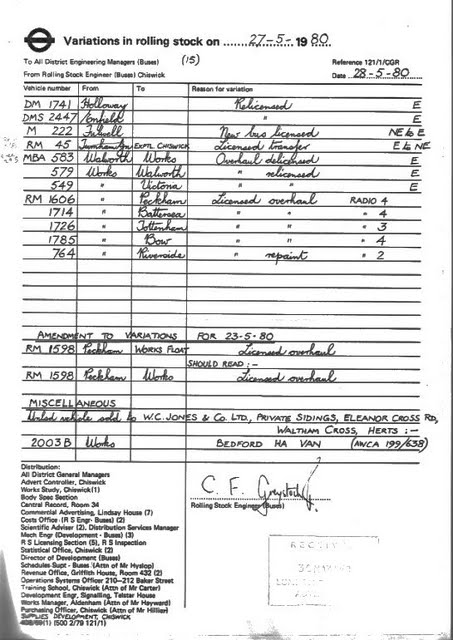 Variations in rolling stock on 27-5-1980
To All District Engineering Managers (Buses) (15) Reference 121/1/CGR
From Rolling Stock Engineer (Buses) Chiswick Date 28-5-80
Vehicle number From To Reason for variation
DM 1741 Holloway Relicensed E
DMS 2447 Enfield " E
M 222 Fulwell New bus licensed NE to E
RM 45 Turnham Gn EXPTL CHISWICK Licensed transfer E to NE
MBA 583 Walworth Works Overhaul delicensed E
579 Works Walworth " relicensed E
549 " Victoria " " E
RM 1606 " Peckham Licensed overhaul RADIO 4
1714 " Battersea " " " 4
1726 " Tottenham " " " 3
1785 " Bow " " " 4
764 " Riverside " repaint " 2
AMENDMENT TO VARIATIONS FOR 23-5-80
RM 1598 Peckham WORKS FLOAT Licensed overhaul
SHOULD READ :-
RM 1598 Peckham Works Licensed overhaul
MISCELLANEOUS
vehicle sold to W.C. JONES & Co. LTD., PRIVATE SIDINGS, ELEANOR CROSS RD,
WALTHAM CROSS, HERTS :-
2003 B Works BEDFORD HA VAN (AWCA 199/638)
Distribution:
All District General Managers
Advert Controller, Chiswick
Works Study, Chiswick (1)
Body Spec Section
Central Record, Room 34
Commercial Advertising, Lindsay House (7)
Costs Office (R S Engr- Buses) (2)
Scientific Adviser (2), Distribution Services Manager
Mech Engr (Development - Buses) (3)
R S Licensing Section (5), R S Inspection
Statistical Office, Chiswick (2)
Director of Development (Buses)
Schedules Supt - Buses (Attn of Mr Hyslop)
Revenue Office, Griffith House, Room 432 (2)
Operations Systems Officer 210-212 Baker Street
Training School, Chiswick (Attn of Mr Carter)
Development Engr, Signalling, Telstar House
Works Manager, Aldenham (Attn of Mr Hayward)
Purchasing Officer, Chiswick (Attn of Mr Hillier)
SUPPLIES DEVELOPMENT, CHISWICK
(500 2/79 121/1)
C. F.
Rolling Stock Engineer (Buses)